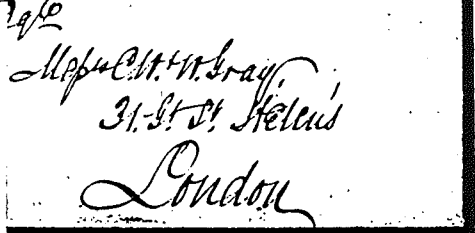 Messrs C.W. & W. Gray,
31. Gt St Helen's
London